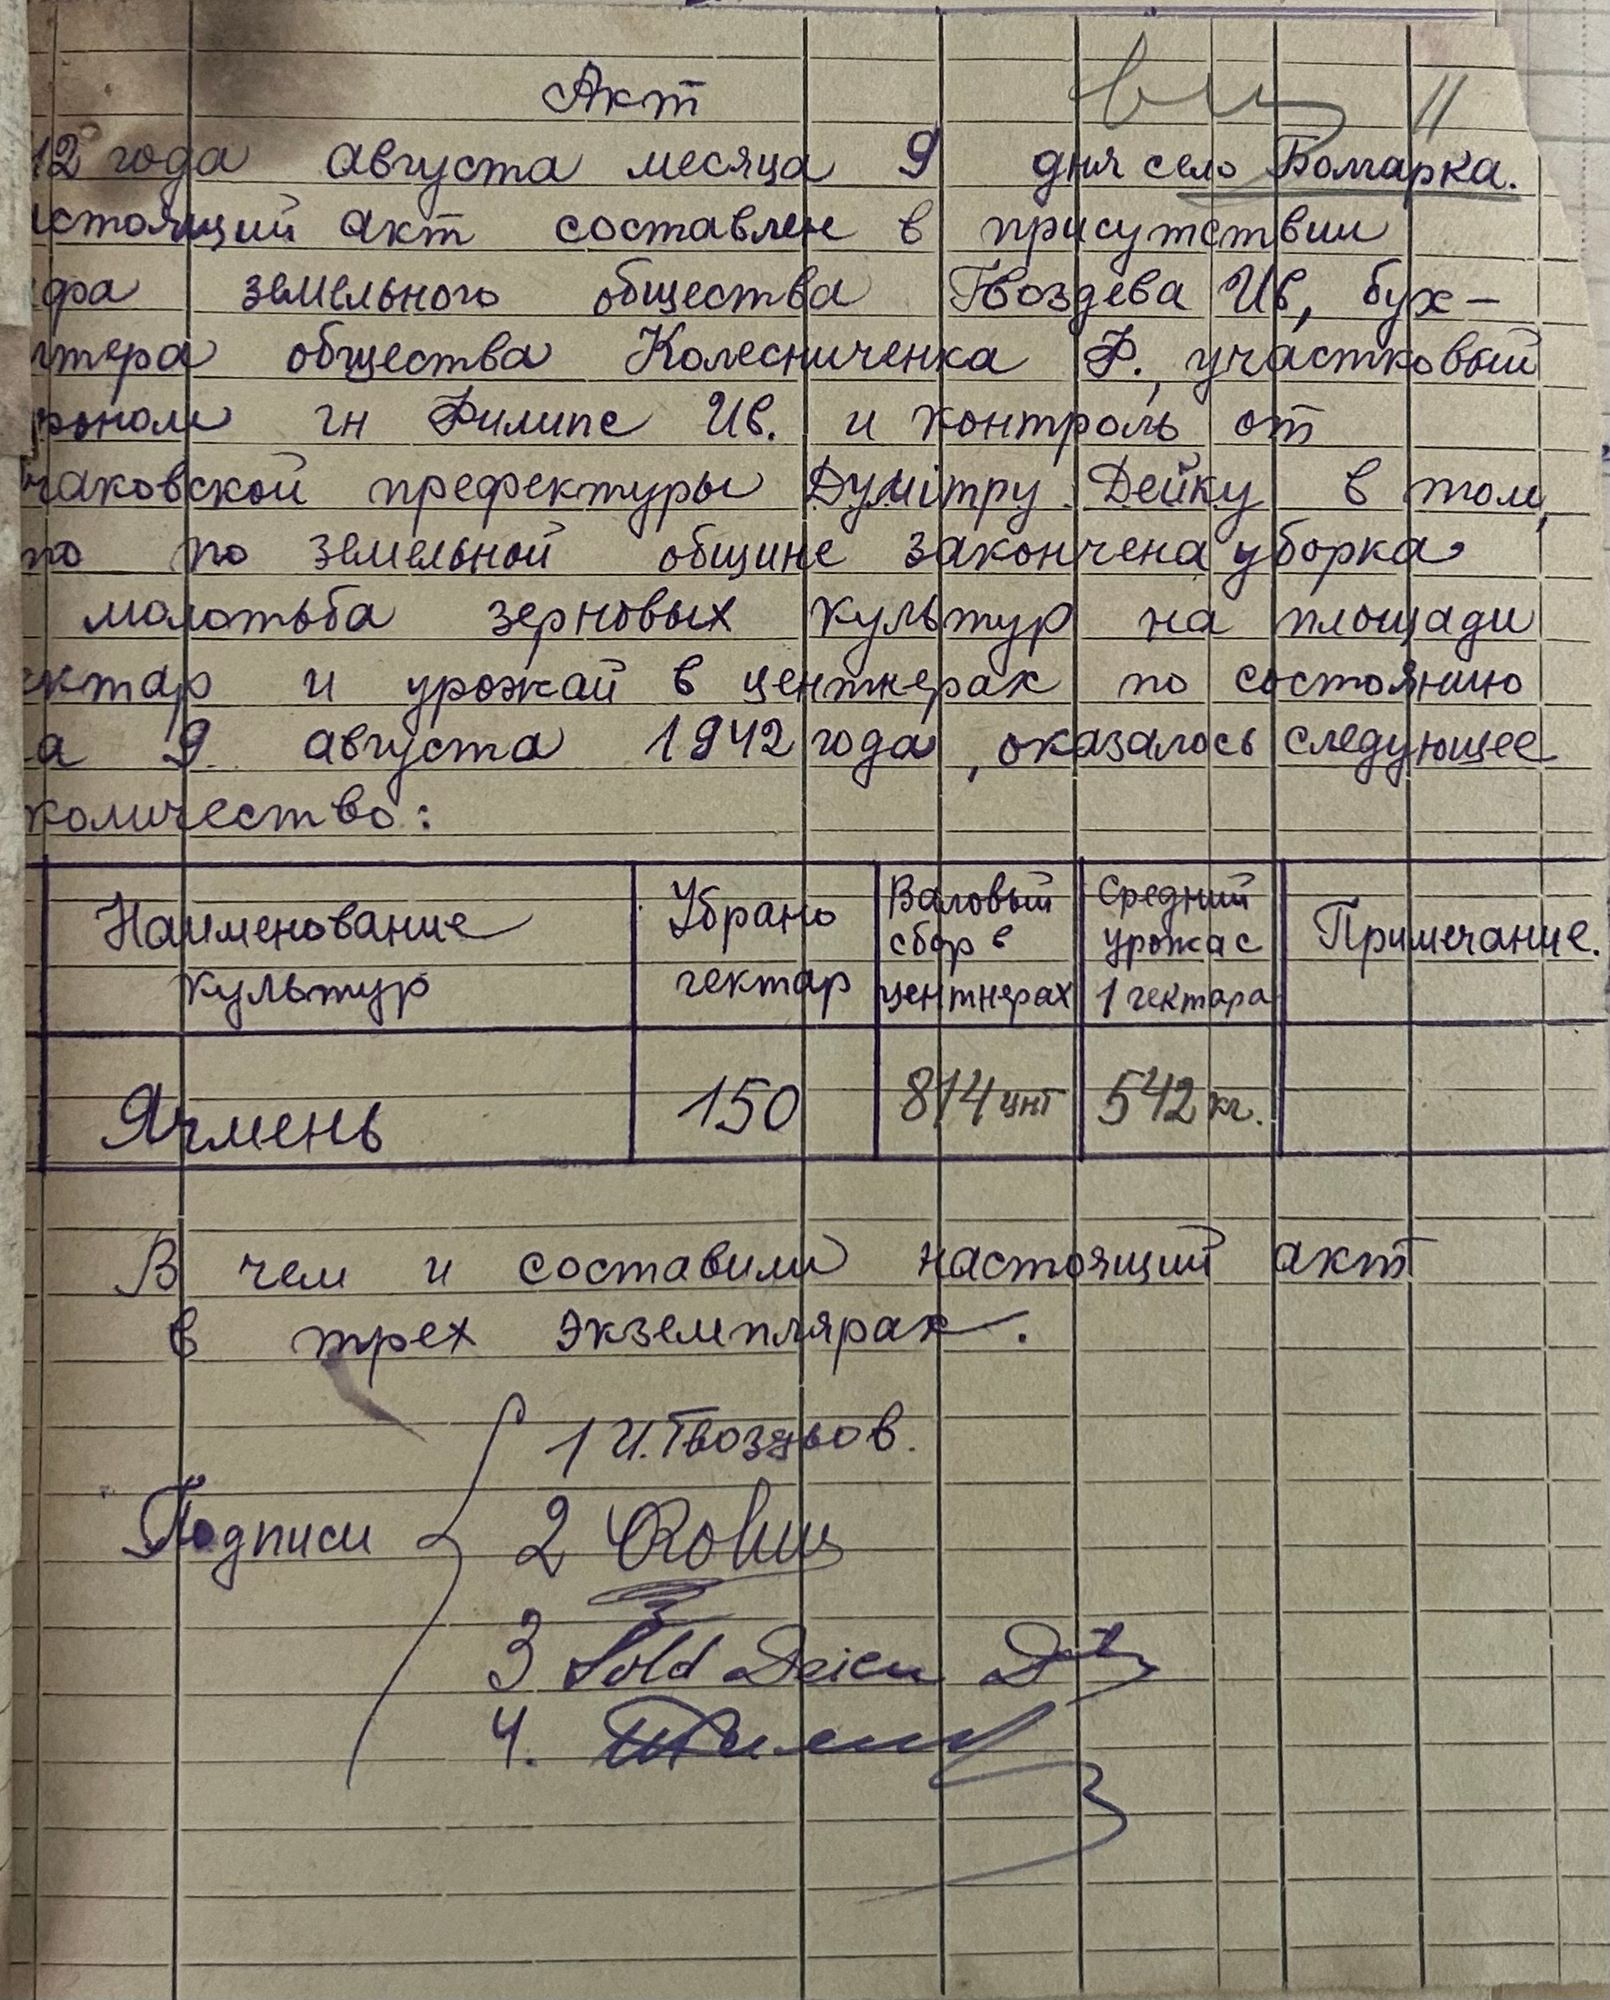 Акт
12 года августа месяца 9 дня село Болгарка.
стоящий акт составлен в присутствии
фа земельного общества Гвоздева Ив, бух-
лтера общества Колесниченка Ф., участковый
роном гн Филипс Ив. и контроль от
чаковской префектуры Думітру Дейку в том,
то по земельной общине закончена уборка
молотьба зерновых культур на площади
ектар и урожай в центнерах по состоянию
а 9 августа 1942 года, оказалось следующее
количество:
Наименование культур Убрано гектар Валовый сбор в центнерах Средний урожа с 1 гектара Примечание.
Ячмень 150 814 цнт 542 кг.
В чем и составили настоящий акт
в трех экземплярах.
Подписи
1 И. Гвоздьов.
2
3 Sold Deicu
4.